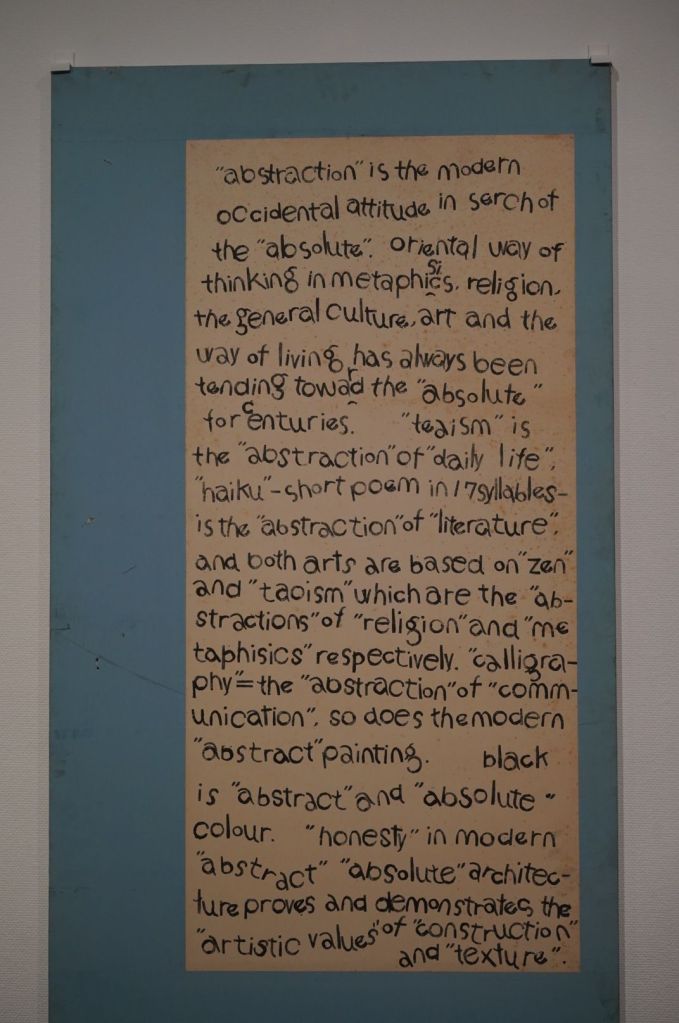 "abstraction" is the modern
occidental attitude in serch of
the "absolute". oriental way of
thinking in metaphisics, religion,
the general culture, art and the
way of living has always been
tending toward the "absolute"
for centuries. "teaism" is
the "abstraction" of "daily life",
"haiku" - short poem in 17 syllables -
is the "abstraction" of "literature",
and both arts are based on "zen"
and "taoism" which are the "ab-
stractions" of "religion" and "me
taphisics" respectively. "calligra-
phy" = the "abstraction" of "comm-
unication", so does the modern
"abstract" painting. black
is "abstract" and "absolute"
colour. "honesty" in modern
"abstract" "absolute" architec-
ture proves and demonstrates the
"artistic values" of "construction"
and "texture".